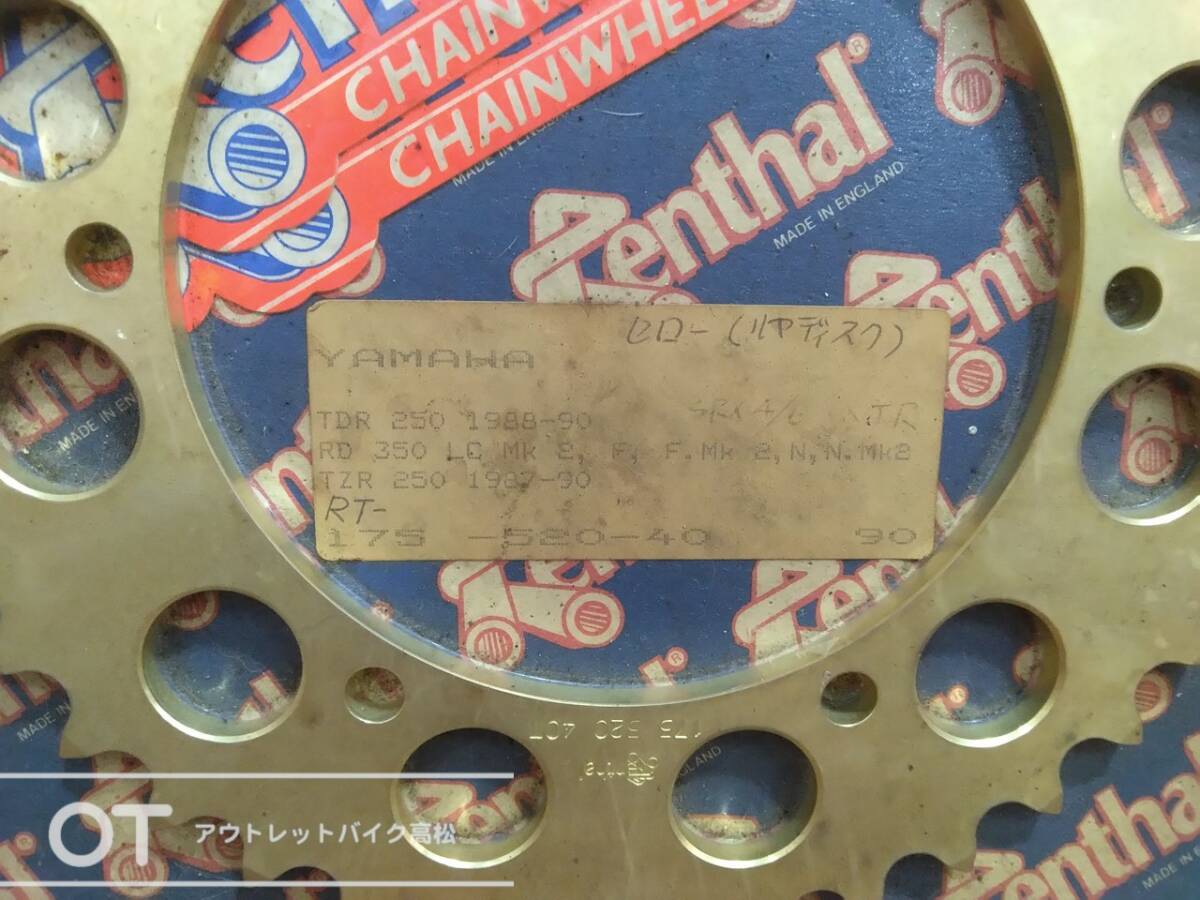 CHAINW
CHAINWHEEL
MADE IN ENG
Renthal®
MADE IN ENGLAND
enth
セロー(リヤディスク)
YAMAHA
TDR 250 1988-90
RD 350 LC Mk 2, F, F.Mk 2,N,N.Mk2
TZR 250 1987-90
RT-
175 -520-40 90
175 520 40T
Renthal
MADE IN EN
MADE IN
GLAND
Renthal
enthal
MADE IN ENGLAND
OT アウトレットバイク高松